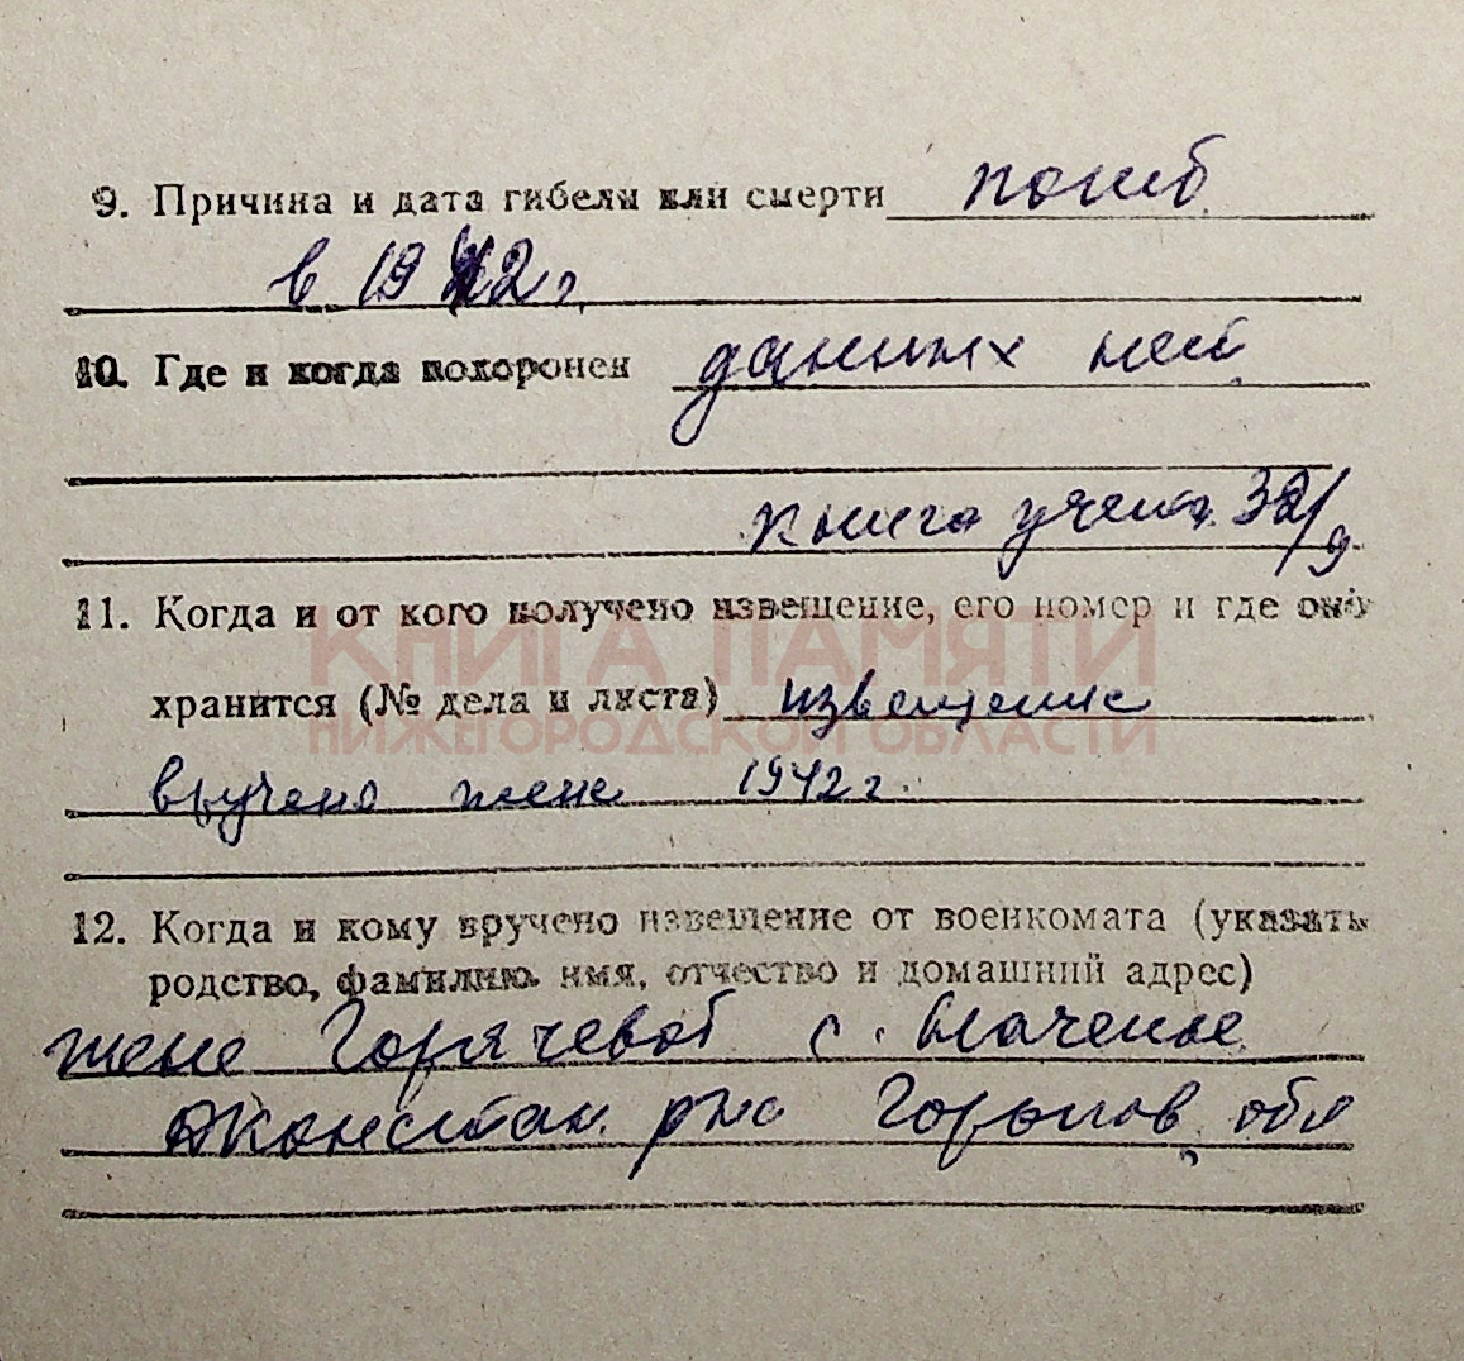 9. Причина и дата гибели или смерти погиб
в 1942 г.
10. Где и когда похоронен данных нет
книга учета 32/9
11. Когда и от кого получено извещение, его номер и где оно
КНИГА ПАМЯТИ
хранится (№ дела и листа) извещение
НИЖЕГОРОДСКОЙ ОБЛАСТИ
вручено жене 1942 г.
12. Когда и кому вручено извещение от военкомата (указать
родство, фамилию, имя, отчество и домашний адрес)
жене Горячевой с.
Д Констан. р-на Горьков. обл